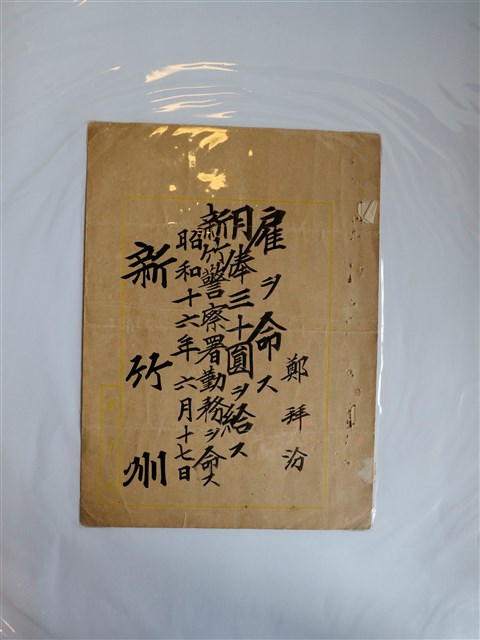 鄭拜汾
雇ヲ命ス
月俸三十圓ヲ給ス
新竹警察署勤務ヲ命ス
昭和十六年六月十七日
新竹州